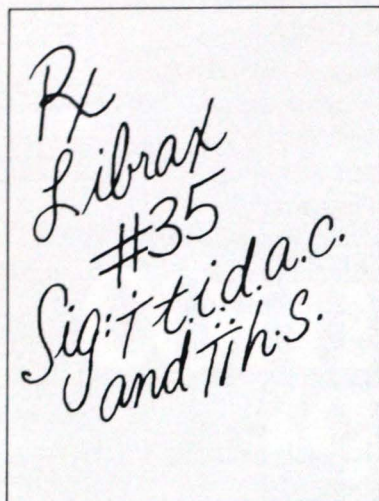 Rx
Librax
#35
Sig: i t.i.d.a.c.
and ii h.s.